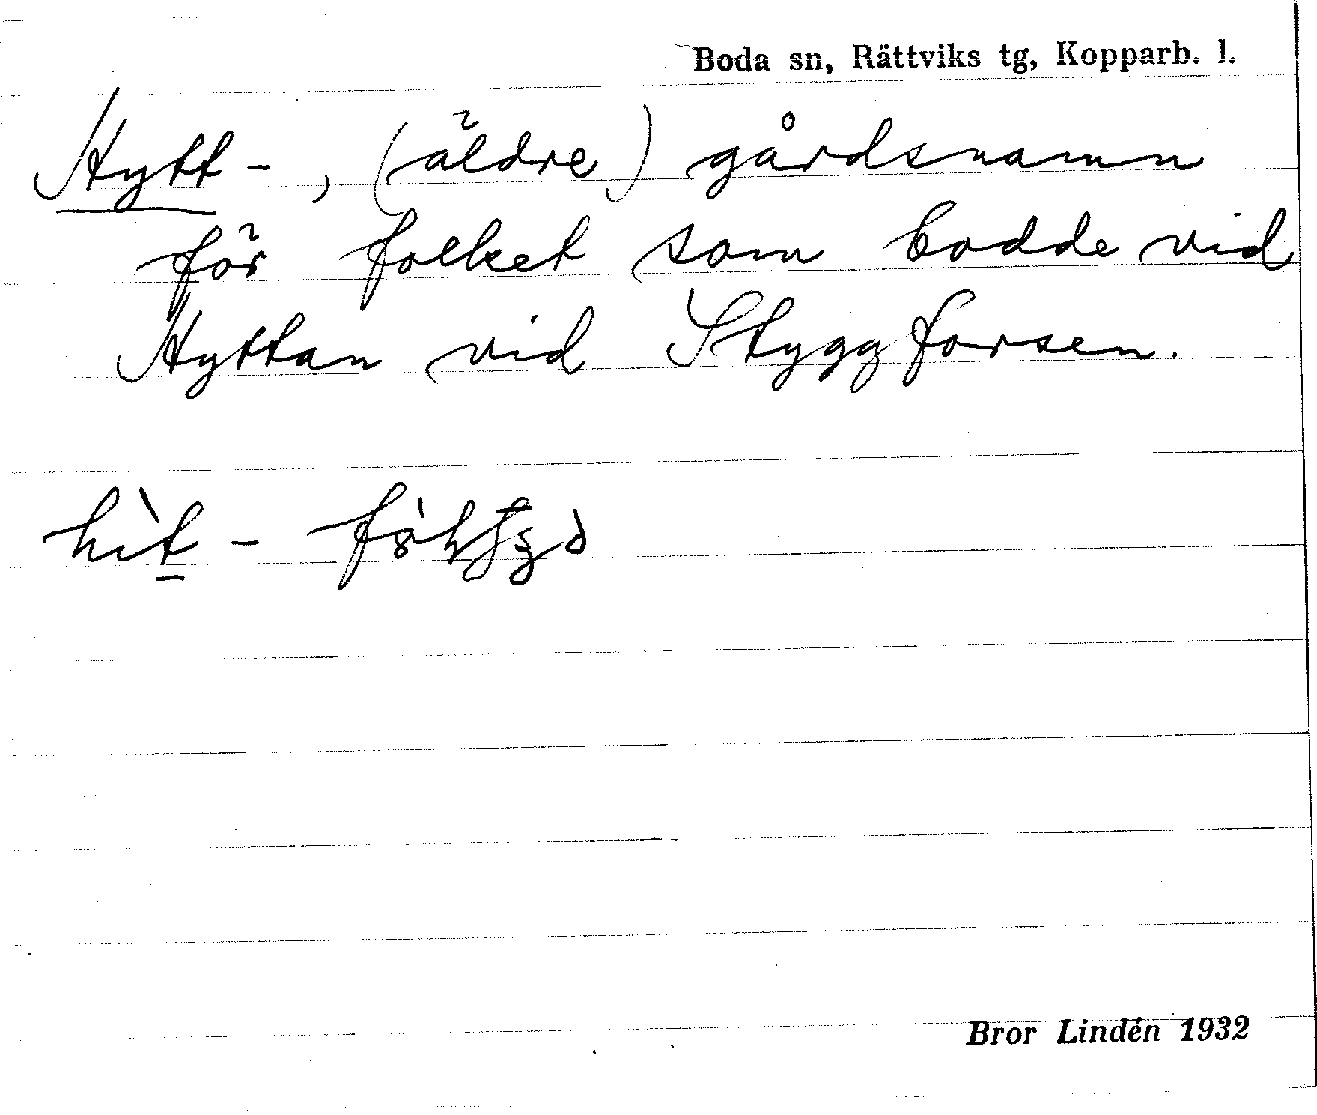 Boda sn, Rättviks tg, Kopparb. l.
Hytt-, (äldre) gårdsnamn
för folket som bodde vid
Hyttan vid Styggforsen.
hìt -
Bror Lindén 1932